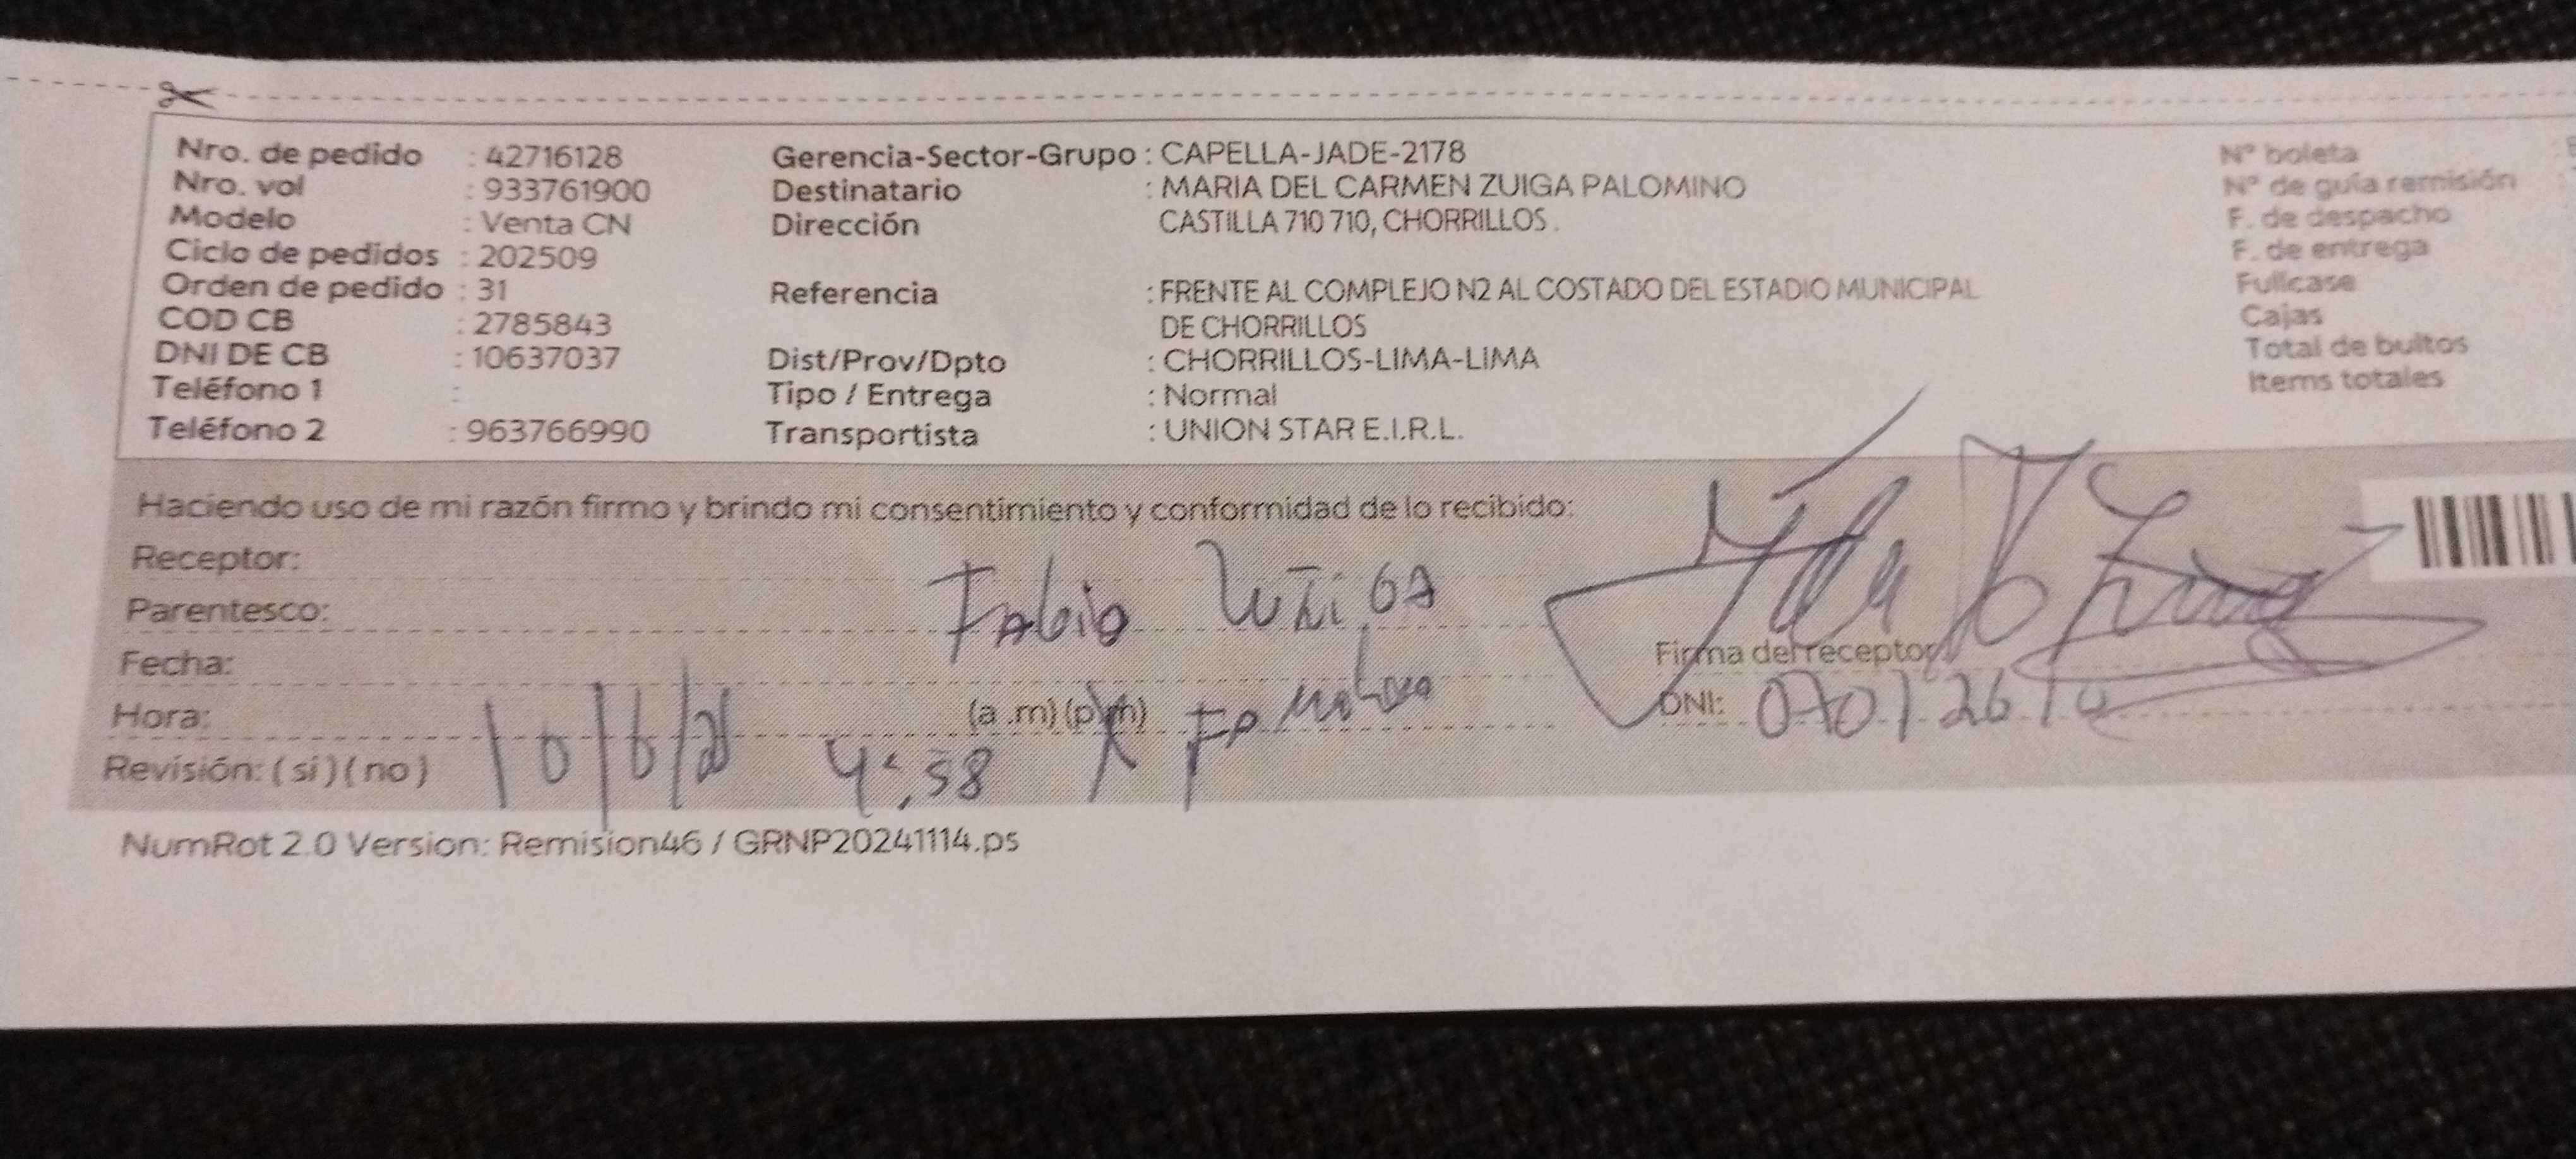 Nro. de pedido : 42716128 Gerencia-Sector-Grupo : CAPELLA-JADE-2178 N° boleta
Nro. vol : 933761900 Destinatario : MARIA DEL CARMEN ZUIGA PALOMINO N° de guía remisión
Modelo : Venta CN Dirección CASTILLA 710 710, CHORRILLOS . F. de despacho
Ciclo de pedidos : 202509 F. de entrega
Orden de pedido : 31 Referencia : FRENTE AL COMPLEJO N2 AL COSTADO DEL ESTADIO MUNICIPAL Fullcase
COD CB : 2785843 DE CHORRILLOS Cajas
DNI DE CB : 10637037 Dist/Prov/Dpto : CHORRILLOS-LIMA-LIMA Total de bultos
Teléfono 1 : Tipo / Entrega : Normal Items totales
Teléfono 2 : 963766990 Transportista : UNION STAR E.I.R.L.
Haciendo uso de mi razón firmo y brindo mi consentimiento y conformidad de lo recibido:
Receptor:
Parentesco: Fabio Zuñiga
Fecha: Firma del receptor
Hora: (a .m) (p.m) DNI:
Revisión: ( si ) ( no ) 4:58
NumRot 2.0 Version: Remision46 / GRNP20241114.ps